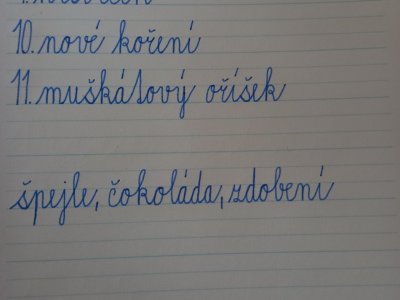 10. nové koření
11. muškátový oříšek
špejle, čokoláda, zdobení